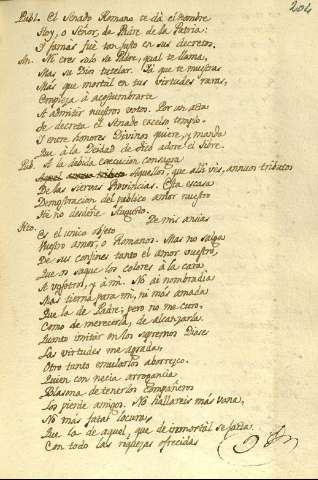 204
Publ. El Senado Romano te dà el nombre
Hoy, o Señor, de Padre de la Patria:
I jamàs fuè tan justo en sus decretos.
An. Ni eres solo su Padre, qual te llama,
Mas su Dios tutelar. Ià que te muestras
Más que mortal en tus virtudes raras,
Empieza à acostumbrarte
A admitir nuestros votos. Por un acta
Se decreta el Senado excelso templo.
I entre honores Divinos quiere, y manda
Que à la Deidad de Tito adore el Tibre.
Pub. A la subida execucion consagra
Aquellos, que allà vès, annuos tributos
De las siervas Provincias. Esta escasa
Demonstracion del publico amor nuestro
No no desdeñe Augusto.
De mis ansias
Tito. Es el unico objeto
Vuestro amor, o Romanos. Mas no salga
De sus confines tanto el amor vuestro,
Que os saque los colores à la cara
A vosotros, y à mi. No ai nombradia
Mas tierna para mi, ni más amada
Que la de Padre; pero no me curo,
Como de merecerla, de alcanzarla.
Quanto imitar en los supremos Dioses
Las virtudes me agrada,
Otro tanto emularlos aborrezco.
Quien con necia arrogancia
Blasona de tenerlos Compañeros
Los pierde amigos. No hallareis más vana,
Ni más fatal locura,
Que la de aquel, que de inmortal se jacta.
Con todo las riquezas ofrecidas